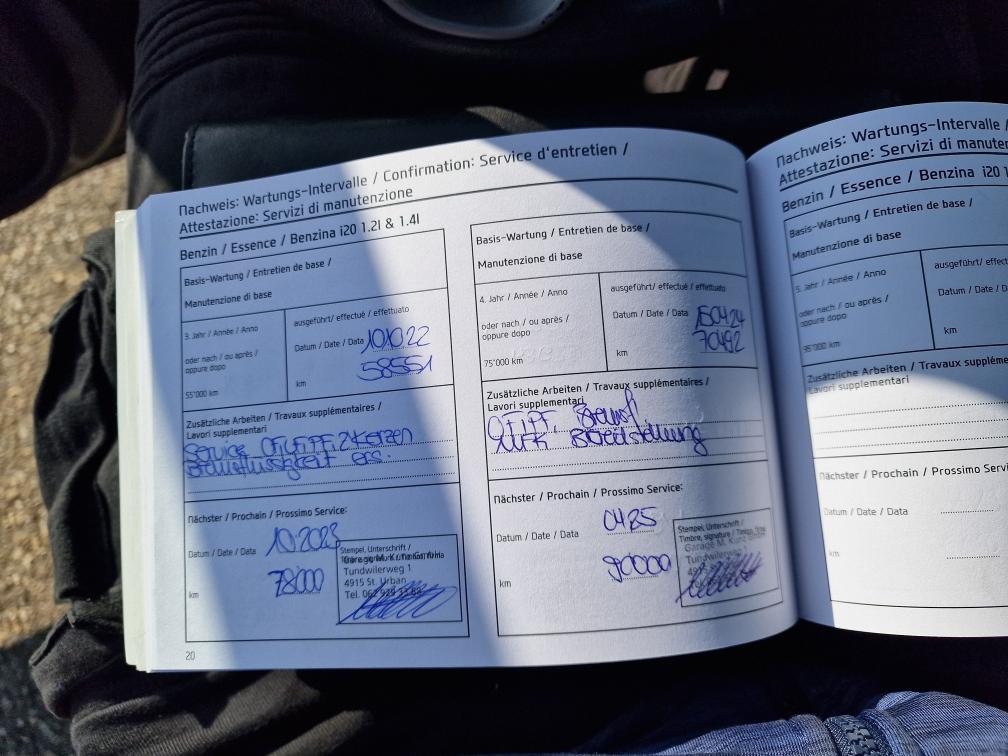 Nachweis: Wartungs-Intervalle / Confirmation: Service d'entretien /
Attestazione: Servizi di manutenzione
Benzin / Essence / Benzina i20 1.2l & 1.4l
Basis-Wartung / Entretien de base /
Manutenzione di base
3. Jahr / Année / Anno
oder nach / ou après /
oppure dopo
55'000 km
ausgeführt/ effectué / effettuato
Datum / Date / Data 10.10.22
km 58551
Zusätzliche Arbeiten / Travaux supplémentaires /
Lavori supplementari
Service
Bremsflüssigkeit ers.
Nächster / Prochain / Prossimo Service:
Datum / Date / Data 10.2023
km 78000
Stempel, Unterschrift /
Tundwilerweg 1
4915 St. Urban
Tel. 062 929
20
Basis-Wartung / Entretien de base /
Manutenzione di base
4. Jahr / Année / Anno
oder nach / ou après /
oppure dopo
75'000 km
ausgeführt/ effectué / effettuato
Datum / Date / Data 150424
km 70492
Zusätzliche Arbeiten / Travaux supplémentaires /
Lavori supplementari
MFK Bereitstellung
Nächster / Prochain / Prossimo Service:
Datum / Date / Data 0425
km 90000
Stempel, Unterschrift /
Timbre, signature /
Garage M. Kunz
Tundwilerweg
Nachweis: Wartungs-Intervalle /
Attestazione: Servizi di
Benzin / Essence / Benzina i20
Basis-Wartung / Entretien de base /
Manutenzione di base
5. Jahr / Année / Anno
oder nach / ou après /
oppure dopo
95'000 km
ausgeführt/
Datum / Date /
km
Zusätzliche Arbeiten / Travaux
Lavori supplementari
Nächster / Prochain / Prossimo
Datum / Date / Data
km